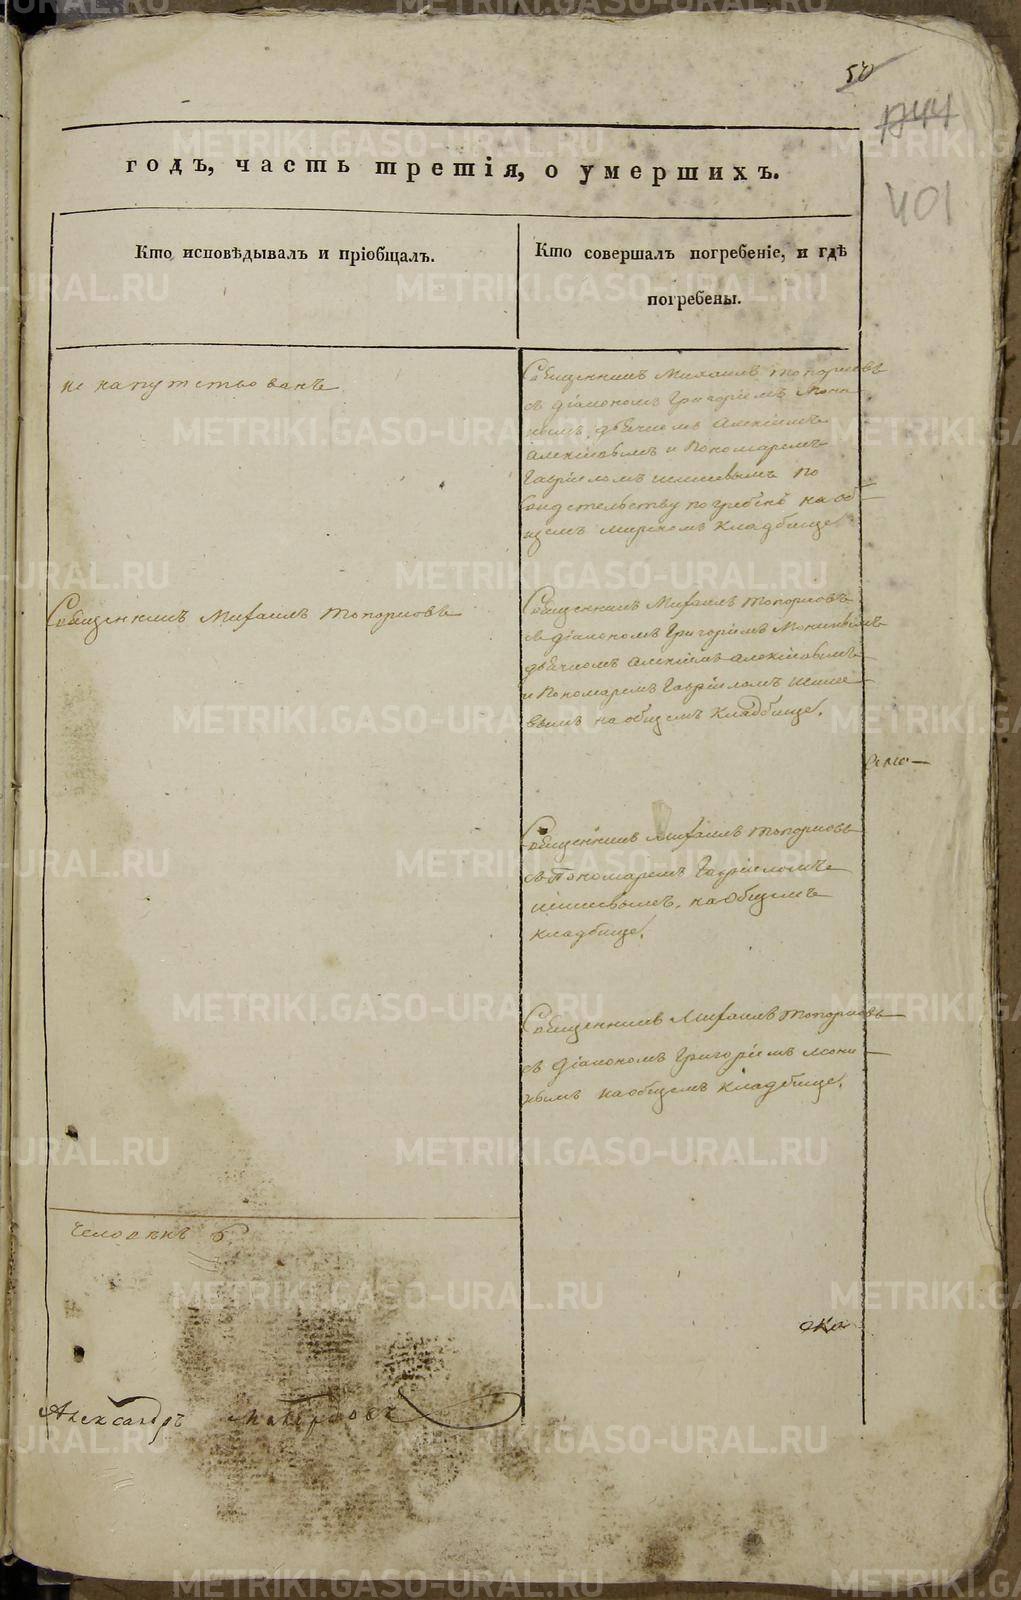 50
1744
401
годъ, часть третія, о умершихъ.
Кто исповѣдывалъ и пріобщалъ.
Кто совершалъ погребеніе, и гдѣ
погребены.
не напутствованъ
Священникъ Михаилъ Топорковъ
съ діакономъ Григоріемъ Мони
нымъ, дьячкомъ Алексіемъ
Алексіевымъ и Пономаремъ
Гавріиломъ по
свидетельству погребенъ на об
щемъ мирскомъ кладбище
Священникъ Михаилъ Топорковъ
Священникъ Михаилъ Топорковъ
съ діакономъ Григоріемъ
дьячкомъ Алексіемъ Алексіевымъ
и Пономаремъ Гавріиломъ
вымъ на общемъ кладбище.
Священникъ Михаилъ Топорковъ
съ Пономаремъ Гавріиломъ
на общемъ
кладбище.
Священникъ Михаилъ Топорковъ
съ діакономъ Григоріемъ Мони
нымъ на общемъ кладбище.
Человѣкъ 6
Александръ
METRIKI.GASO-URAL.RU